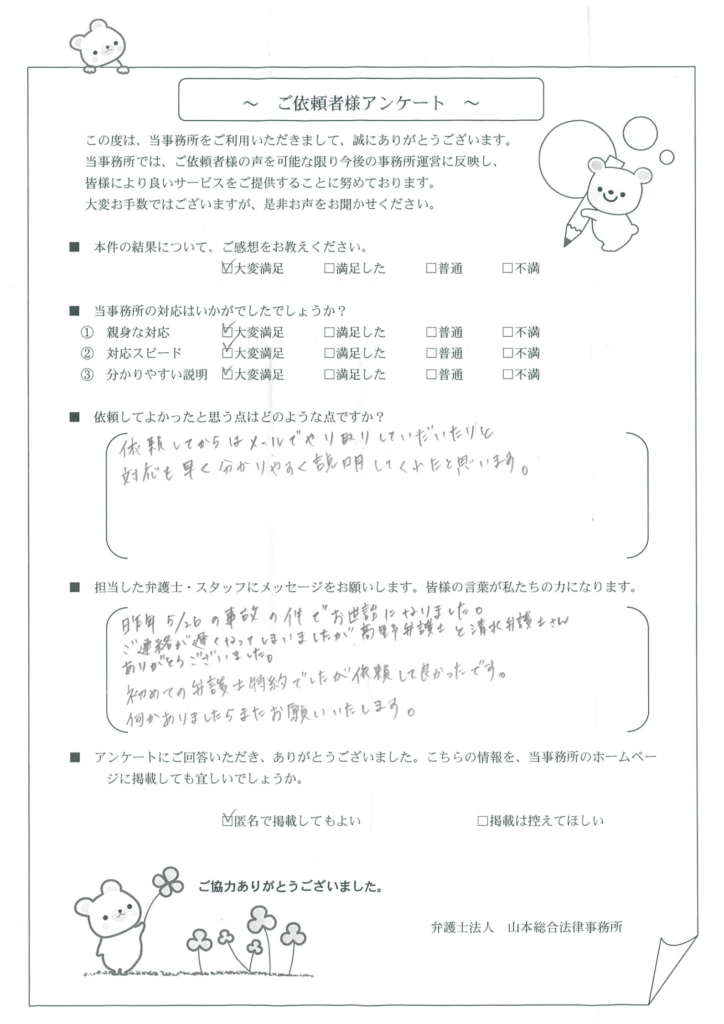 ～ ご依頼者様アンケート ～
この度は、当事務所をご利用いただきまして、誠にありがとうございます。
当事務所では、ご依頼者様の声を可能な限り今後の事務所運営に反映し、
皆様により良いサービスをご提供することに努めております。
大変お手数ではございますが、是非お声をお聞かせください。
■ 本件の結果について、ご感想をお教えください。
☑大変満足 □満足した □普通 □不満
■ 当事務所の対応はいかがでしたでしょうか？
① 親身な対応 ☑大変満足 □満足した □普通 □不満
② 対応スピード ☑大変満足 □満足した □普通 □不満
③ 分かりやすい説明 ☑大変満足 □満足した □普通 □不満
■ 依頼してよかったと思う点はどのような点ですか？
依頼してからはメールでやり取りしていだいたりと
対応も早く分かりやすく説明してくれたと思います。
■ 担当した弁護士・スタッフにメッセージをお願いします。皆様の言葉が私たちの力になります。
昨年 5/26 の事故の件でお世話になりました。
ご連絡が遅くなってしまいましたが 高野弁護士と清水弁護士さん
ありがとうございました。
初めての弁護士特約でしたが依頼して良かったです。
何かありましたらまたお願いいたします。
■ アンケートにご回答いただき、ありがとうございました。こちらの情報を、当事務所のホームペー
ジに掲載しても宜しいでしょうか。
☑匿名で掲載してもよい □掲載は控えてほしい
ご協力ありがとうございました。
弁護士法人 山本総合法律事務所